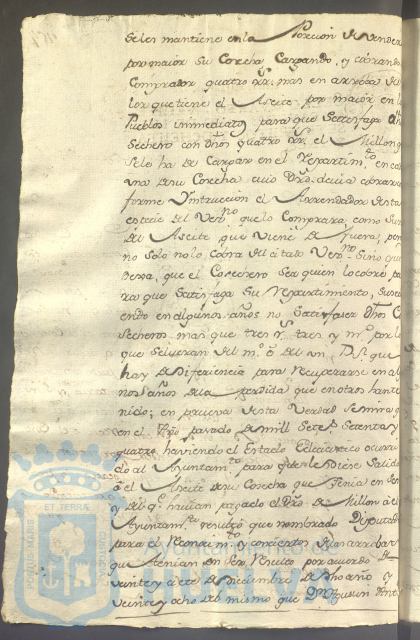 se les mantiene en la Posecion de vender
por maior su Cosecha, Cargando, y cobrando
Comprador quatro rr.s mas en arroba de
lo que tiene el Aseite por maior en l
Pueblos inmediatos para que Satisfaga
Sechero con dhos quatro rr.s el Millon q
Se le ha de Cargar en el Repartim.to en ca
una de su Cosecha cuio dro. devia cobrar
forme Ynstruccion el Arrendador de esta
especie del que lo Comprara, como su
del Aseite que viene de fuera, per
no solo no lo Cobra del citado sino que
Dexa, que el Cosechero sea quien lo cobre pa
ra que Satisfaga Su Repartimiento, suce
endo en algunos años no Satisfacer dhos Co
secheros mas que tres rr.s tres y m.o por lo
que se llevan del m.o ô del un R.l que
hay de diferiencia para recuperarse en al
nos años de la perdida que en otros han te
nido; en prueva de esta Verdad se mira q
en el Año pasado de mill Sete.s Setenta y
quatro, haviendo el Estado Eclesiastico ocurri
do al Ayuntam.to para que se le diese Salida
â el Aseite de su Cosecha que tenia en ser
y del q.e havian pagado el dro. de Millon â el
Ayuntam.to resultó que nombrado Diputados
para el Reconocim.to y concierto de las arrobas
que tenian en ser, resulto por acuerdo de
veinte y siete de Diciembre de dho año y
veinte y ocho del mismo que Dn. Agustin
ET TERRA
PORTUS MARIS
Ayuntamiento de